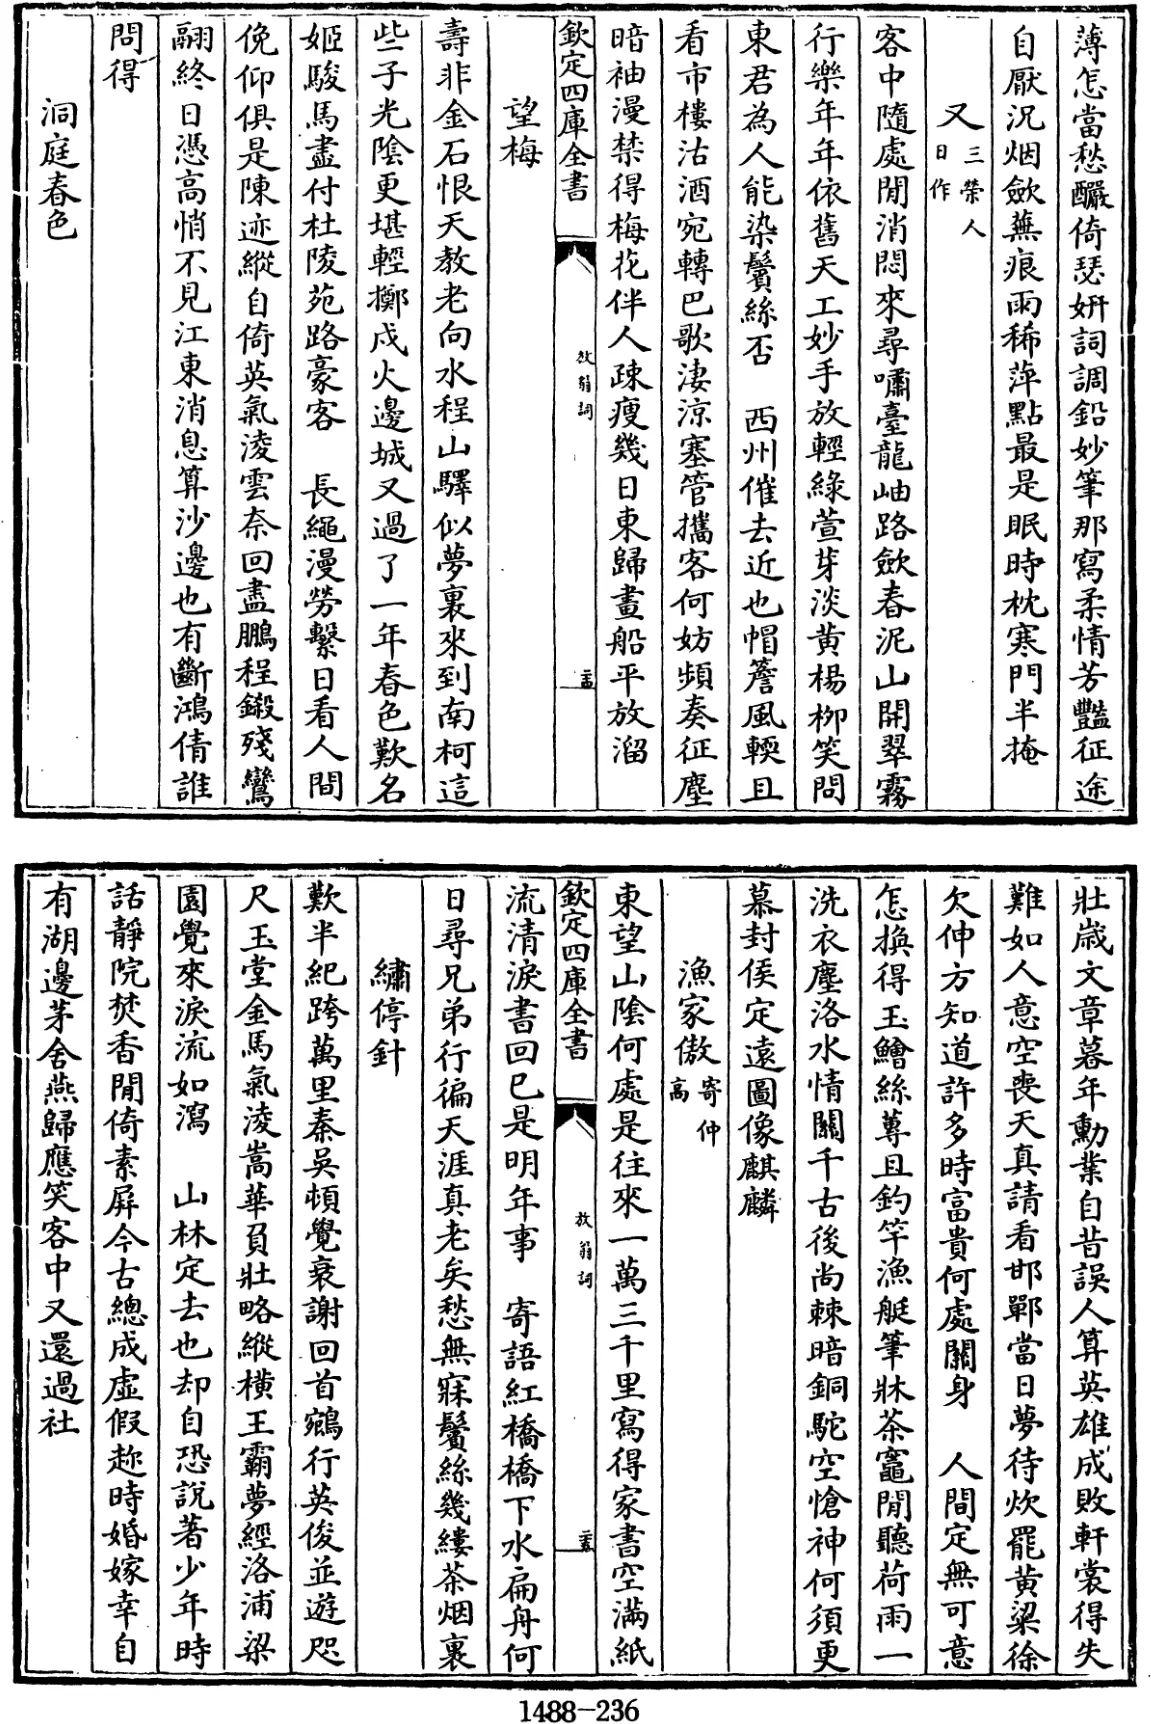 薄怎當愁釅倚瑟妍詞調鉛妙筆那寫柔情芳豔征途
自厭況烟斂蕪痕雨稀萍點最是眠時枕寒門半掩
又三榮人日作
客中隨處閒消悶來尋嘯臺龍岫路斂春泥山開翠霧
行樂年年依舊天工妙手放輕綠萱芽淡黄楊柳笑問
東君為人能染鬢絲否　西州催去近也帽簷風輭且
看市樓沽酒宛轉巴歌淒涼塞管攜客何妨頻奏征塵
暗袖漫禁得梅花伴人疎瘦幾日東歸畫船平放溜
欽定四庫全書
放翁詞
望梅
壽非金石恨天教老向水程山驛似夢裏來到南柯這
些子光陰更堪輕擲戍火邊城又過了一年春色歎名
姬駿馬盡付杜陵苑路豪客　長繩漫勞繫日看人間
俛仰俱是陳迹縱自倚英氣淩雲奈回盡鵬程鎩殘鸞
翮終日憑高悄不見江東消息算沙邊也有斷鴻倩誰
問得
洞庭春色
壯歲文章暮年勳業自昔誤人算英雄成敗軒裳得失
難如人意空喪天真請看邯鄲當日夢待炊罷黄粱徐
欠伸方知道許多時富貴何處關身　人間定無可意
怎換得玉鱠絲蓴且釣竿漁艇筆牀茶竈閒聽荷雨一
洗衣塵洛水情關千古後尚棘暗銅駝空愴神何須更
慕封侯定遠圖像麒麟
漁家傲寄仲高
東望山陰何處是往來一萬三千里寫得家書空滿紙
欽定四庫全書
放翁詞
流清淚書回已是明年事　寄語紅橋橋下水扁舟何
日尋兄弟行徧天涯真老矣愁無寐鬢絲幾縷茶烟裏
繡停針
歎半紀跨萬里秦吳頓覺衰謝回首鵷行英俊並遊咫
尺玉堂金馬氣淩嵩華負壯略縱横王霸夢經洛浦梁
園覺來淚流如瀉　山林定去也却自恐說著少年時
話靜院焚香閒倚素屏今古總成虛假趂時婚嫁幸自
有湖邊茅舍燕歸應笑客中又還過社
1488-236